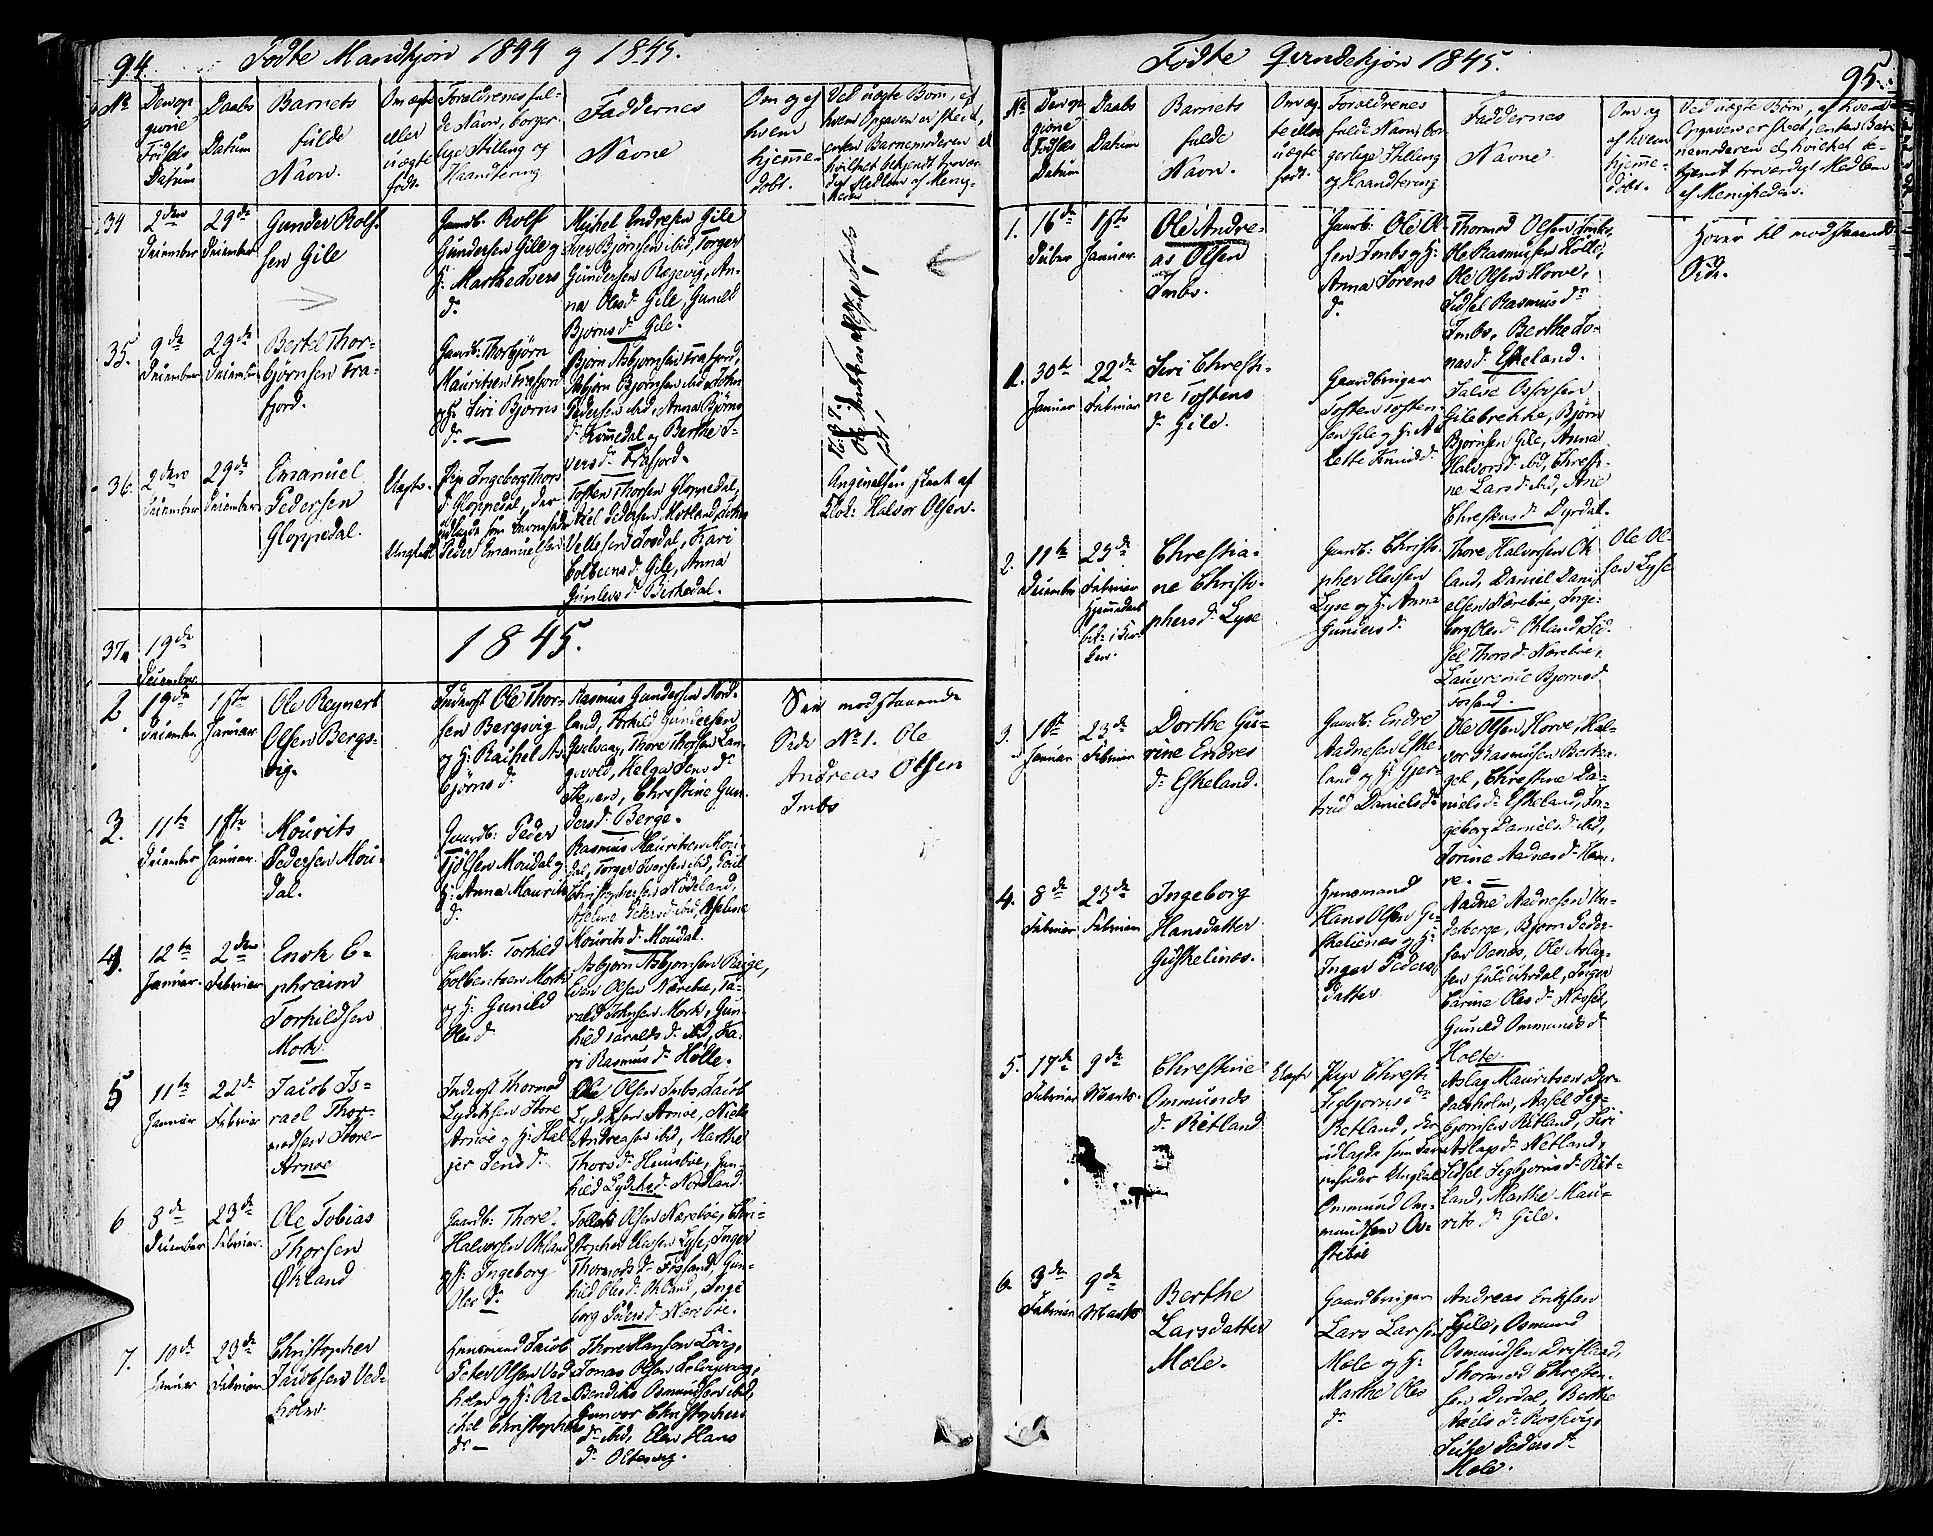 94.
Fødte Mandkjøn 1844 og 1845.
No
Den op-
givne
Fødsels
Datum
Daabs
Datum
Barnets
fulde
Navn.
Om ægte
eller
uægte
født.
Forældrenes ful-
de Navn, borger-
lige Stilling og
Haandtering
Faddernes
Navne
Om og af
hvem
hjemme-
døbt.
Ved uægte Børn, af
hvem Opgaven er skeet,
enten Barnemoderen el
34
2den
December
29de
December
Gunder Rolf-
sen Gile
Gaardb: Rolf
Gundersen Gile og
H: Marthe Ivers
d.
Michel Endresen Gile
Iver Bjørnsen ibid, Torger
Gundersen Ragevig, An-
na Olesd. Gile, Gunild
Bjørnsd. Gile.
35.
9de
December
29de
December
Bertel Thor-
bjørnsen Fra-
fjord.
Gaardb: Thorbjørn
Mauritsen Frafjord
og H: Siri Bjørns
d.
Bjørn Asbjørnsen Frafjord,
Asbjørn Bjørnsen ibid, John
Pedersen ibid, Anna Bjørns
d. Kommedal og Berthe I-
versd. Frafjord.
36.
2den
December
29de
December
Emanuel
Pedersen
Gloppedal.
Uægte.
Pige Ingeborg Thors
d. Gloppedal, der
udlagde som Barnefader
Ungkarl Peder Emanuelsen
Tosten Thorsen Gloppedal,
Axel Pedersen Motland, John
Vellesen Josdal, Kari
Colbeensd. Gile, Anna
Gunlevsd. Birkedal.
Angivelsen skeet af
Klok: Halvor Olsen.
37.
19de
December
1845.
2
19de
December
1ste
Januar
Ole Reynert
Olsen Bergs-
vig.
Inderst Ole Thor-
sen Bergsvig
og H: Rachel As-
bjørnsd.
Rasmus Gundersen Nord-
land, Torkild Gundersen
Qvalvaag, Thore Thorsen Lan-
gevold, Helga Jensd.
Stenens, Christine Gun-
dersd. Berge.
See modstaaende
Side No 1. Ole
Andreas Olsen
Imbs
3.
11te
December
1ste
Januar.
Mourits
Pedersen Mou-
dal.
Gaardb: Peder
Tjølsen Moudal og
H: Anna Maurits
d.
Rasmus Mauritsen Mou-
dal, Torger Iversen ibid, Poul
Christophersen Nødeland,
Asseline Pedersd. ibid, Asseline
Mouritsd. Moudal.
4.
12te
Januar.
2den
Februar
Enok E-
phraim
Torkildsen
Mork.
Gaardb: Torkild
Colbentsen Mork
og H: Gunild
Olesd
Asbjørn Asbjørnsen Rage,
Even Olsen Nærebøe, Ta-
rald Johnsen Mork, Gun-
hild Taraldsd. ibid, Ka-
ri Rasmusd. Hølle.
5
11te
Januar
22de
Februar
Jacob Is-
rael Thor-
modsen Store-
Arnøe
Inderst Thormod
Lydiksen Store
Arnøe og H: Hal-
jer Jensd.
Ole Olsen Imbs, Jacob
Lydiksen Arnøe, Niels
Andreasen ibid, Marthe
Thorsd. Huusebøe, Gun-
hild Lydiksd. Nordland
6
8de
December
23de
Februar.
Ole Tobias
Thorsen
Økland
Gaardb: Thore
Halvorsen Økland
og H: Ingeborg
Olesd.
Tollak Olsen Nærebøe, Chri-
stopher Elevsen Lyse, Inger
Thormodsd. Fossand, Gun-
hild Olesd. Økland, Inge
borg Pedersd. Nærebøe.
7.
10de
Januar
23de
Februar
Christopher
Jacobsen Ved-
holm.
Huusmand Jacob
Peter Olsen Ved-
holm og H: Ra-
chel Christophers
d.
Thore Hansen Løvig,
Jonas Olsen Selvigvog,
Bendiks Osmundsen ibid,
Gunvor Christophers
d. ibid, Elen Hans
d. Oltesvig.
95.
Fødte Qvindekjøn 1845.
No
Den op-
givne
Fødsels
Datum
Daabs
Datum
Barnets
fulde
Navn.
Om æg-
te eller
uægte
født.
Forældrenes
fulde Navn, bor-
gerlige Stilling
og Haandtering
Faddernes
Navne
Om og
af hvem
hjemme-
døbt.
Ved uægte Børn, af hvem
Opgaven er skeet, enten Bar-
nemoderen el hvilket be-
kjendt troværdigt Medlem
af Menigheden.
1.
16de
Decber
1ste
Januar.
Ole Andre-
as Olsen
Imbs.
Gaardb: Ole Ol-
sen Imbs og H:
Anna Sørens
d.
Thormod Olsen Imbs,
Ole Rasmusen Hølle,
Ole Olsen Horve,
Sidsel Rasmusd.
Imbs, Berthe To-
nasd. Eskeland.
Hører til modstaaende
Side.
1.
30te
Januar
22de
Februar
Siri Christi-
ne Tostens
d. Gile.
Gaardbruger
Tosten Tosten-
sen Gile og H: A-
lette Knudsd.
Gilebrekke, Bjørn
Bjørnsen Gile, Anna
Halvorsd. ibid, Christi-
ne Larsd. ibid, Ane
Christensd. Dyrdal.
2.
11te
December
23de
Februar
Hjemmedøbt
Christia-
ne Christo-
phersd. Lyse
Gaardb: Christo-
pher Elevsen
Lyse og H: Anna
Gundersd.
Thore Halvorsen Øk-
land, Daniel Dani-
elsen Nærebøe, Inge-
borg Olesd. Økland, Sid-
sel Thorsd. Nærebøe,
Laurense Bjørnsd
Fossand.
Ole Ol-
sen Lyse
3.
1ste
Januar
23de
Februar
Dorthe Gu-
rine Endres
d. Eskeland.
Gaardb: Endre
Aadnesen Eske-
land og H: Gjer-
trud Danielsd.
Ole Olsen Horve, Hal-
vor Rasmusen Berke-
gol, Christine Da-
nielsd. Eskeland, In-
geborg Danielsd. ibid,
Torine Aadnesd. Ham-
re.
4.
8de
Februar
23de
Februar
Ingeborg
Hansdatter
Gidskelines.
Huusmand
Hans Olsen Gi-
skelienes og H:
Inger Peders
datter
Aadne Aadnesen Un-
deberge, Bjørn Peder-
sen Oenes, Ole Aslag-
sen Fuldørdal, Inger
Carine Olesd. Næsset,
Gunild Ommundsd.
Holte.
5.
17de
Februar
9de
Marts.
Christine
Ommunds
d. Ritland
Uægte
Pige Christi
Segbjørnsd.
Retland, der
udlagde som Bar-
nefader Ungkarl
Ommund Om-
mundsen Ov-
stebøe
Aslag Mauritsen Dyr-
dalsholm, Aasel Seg-
bjørnsen Ritland, Siri
Aslagsd. Netland,
Sidsel Segbjørnsd. Rit-
land, Marthe Mau-
ritsd. Gile.
6.
3de
Februar
9de
Marts
Berthe
Larsdatter
Mele.
Gaardbruger
Lars Larsen
Mele og H:
Marthe Oles
d.
Andreas Eriksen
Gjile, Osmund
Osmundsen Dristland,
Thormod Christen-
sen Dirdal, Berthe
Axelsd. Rossevig,
Pedersd.
Mele.